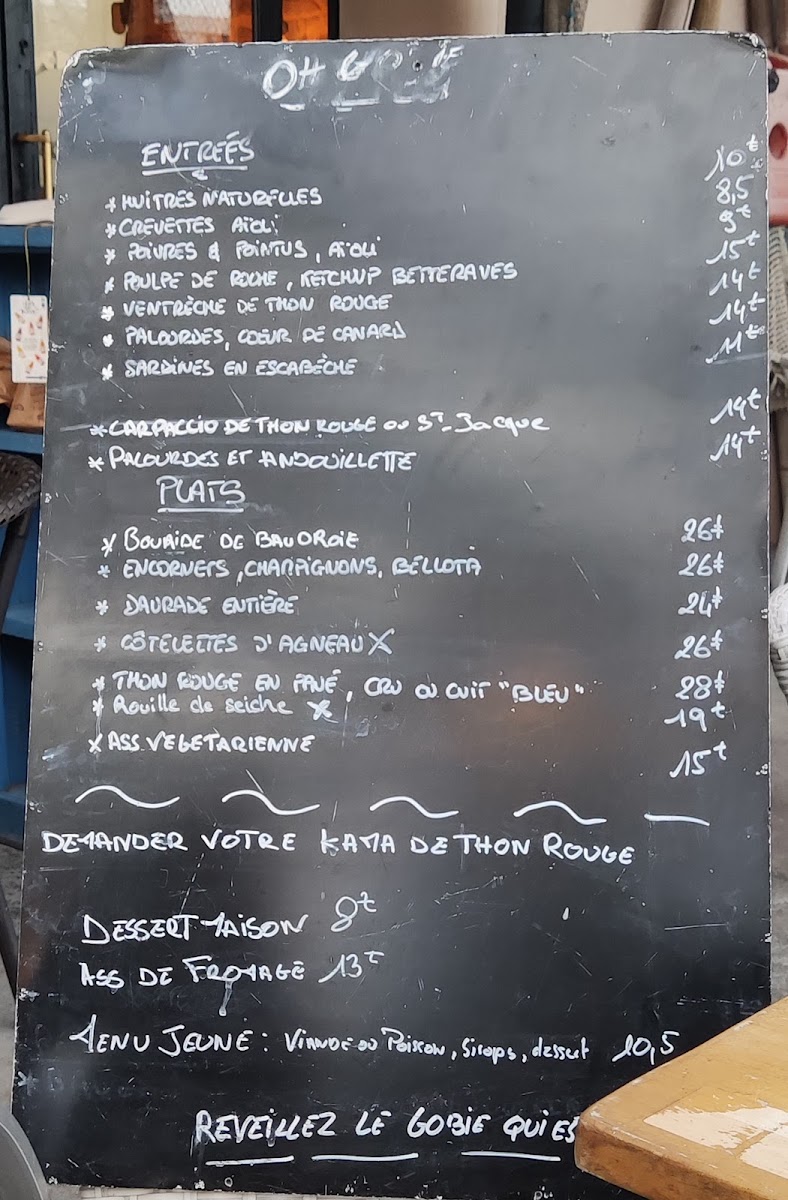 OH GOBIE
ENTREÉS
* HUITRES NATURELLES 10€
* CREVETTES AÏOLI 8,5
* POIVRES & POINTUS, AÏOLI 9€
* POULPE DE ROCHE, KETCHUP BETTERAVES 15€
* VENTRÈCHE DE THON ROUGE 14€
* PALOURDES, COEUR DE CANARD 14€
* SARDINES EN ESCABÈCHE 11€
* CARPACCIO DE THON ROUGE OU ST-Jacque 14€
* PALOURDES ET ANDOUILLETTE 14€
PLATS
* BOURIDE DE BAUDROIE 26€
* ENCORNETS, CHAMPIGNONS, BELLOTA 26€
* DAURADE ENTIÈRE 24€
* CÔTELETTES D'AGNEAU X 26€
* THON ROUGE EN PAVÉ, CRU OU CUIT "BLEU" 28€
* Rouille de seiche X 19€
* ASS VEGETARIENNE 15€
DEMANDER VOTRE KAMA DE THON ROUGE
DESSERT MAISON 8€
ASS DE FROMAGE 13€
MENU JEUNE : VIANDE OU Poisson, Sirops, dessert 10,5
REVEILLEZ LE GOBIE QUI ES